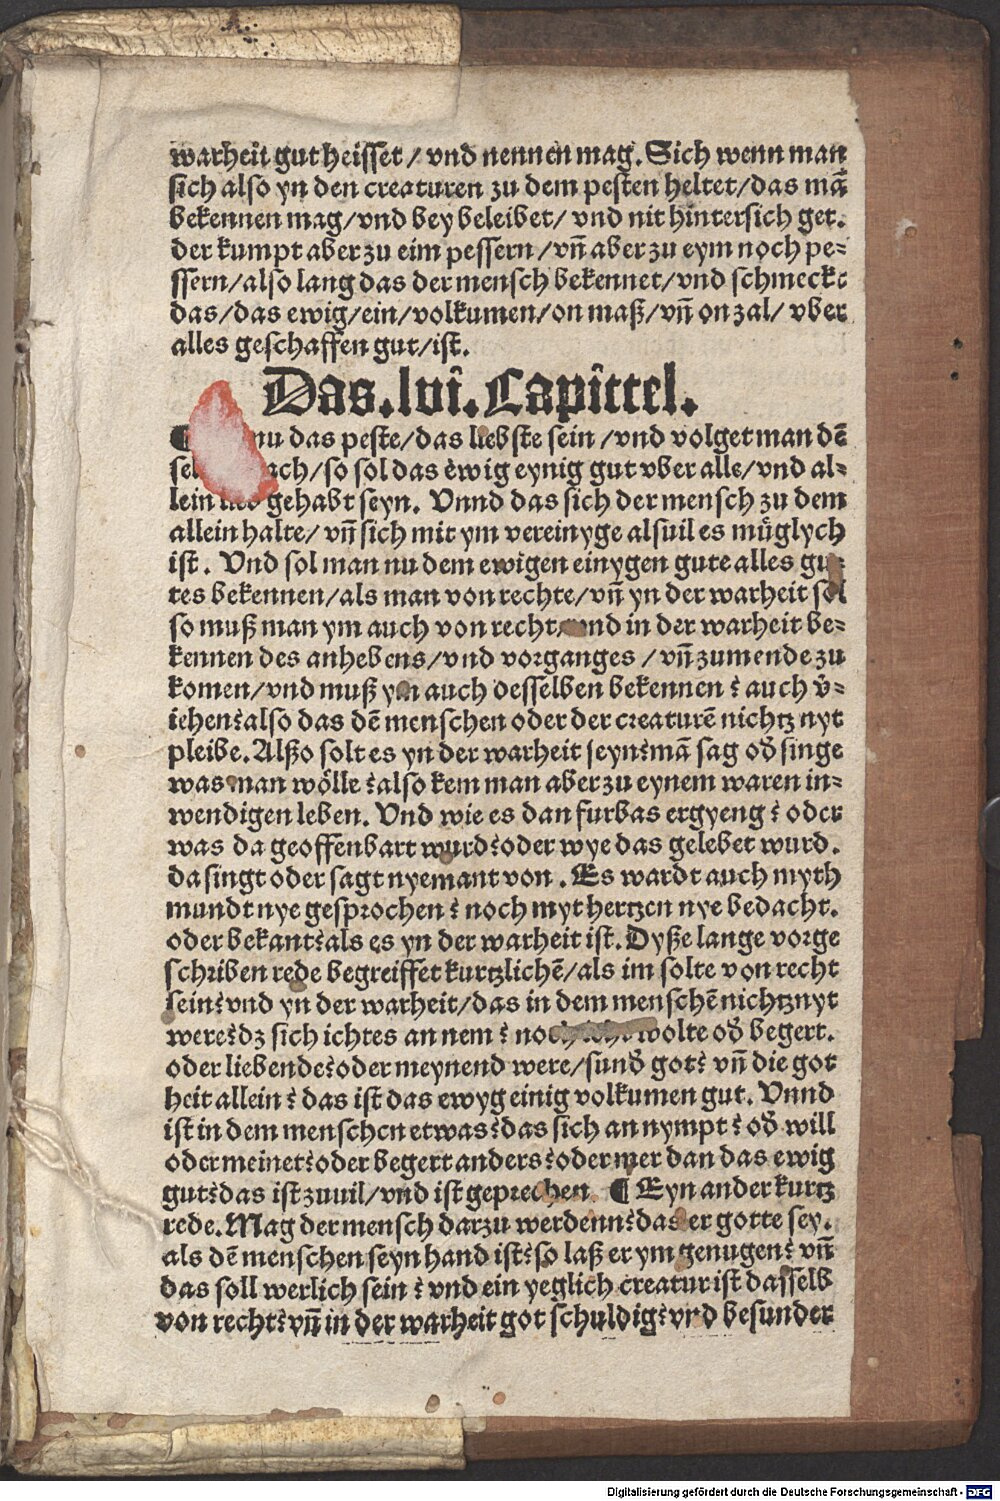 warheit gut heisset / vnd nennen mag. Sich wenn man
sich also yn den creaturen zu dem pesten heltet/das mā
bekennen mag/vnd bey beleibet/ vnd nit hintersich get.
der kumpt aber zu eim pessern /vn̄ aber zu eym noch pe⸗
ssern/also lang das der mensch bekennet/vnd schmeckt
das/das ewig/ein/volkumen/on maß/vn̄ on zal/ vber
alles geschaffen gut/ist.
Das.lvi.Capittel.
nu das peste/das liebste sein /vnd volget man dē
ach/so sol das ewig eynig gut vber alle/vnd al⸗
lein gehabt seyn. Vnnd das sich der mensch zu dem
allein halte/ vn̄ sich mit ym vereinyge alsuil es mu̇glych
ist. Vnd sol man nu dem ewigen einygen gute alles gu⸗
tes bekennen/als man von rechte/vn̄ yn der warheit sol
so muß man ym auch von recht nd in der warheit be⸗
kennen des anhebens/vnd vorganges /vn̄ zum ende zu
komen/vnd muß ym auch desselben bekennen : auch v̄⸗
iehen:also das dē menschen oder der creaturē nichtz nyt
pleibe. Alßo solt es yn der warheit seyn:mā sag od̄ singe
was man wölle :also kem man aber zu eynem waren in⸗
wendigen leben. Vnd wie es dan furbas ergyeng : oder
was da geoffenbart wurd:oder wye das gelebet wurd.
da singt oder sagt nyemant von . Es wardt auch myth
mundt nye gesprochen : noch myt hertzen nye bedacht.
oder bekant:als es yn der warheit ist. Dyße lange vorge
schriben rede begreiffet kurtzlichē/als im solte von recht
sein:vnd yn der warheit/das in dem menschē nichtz nyt
were:dz sich ichtes an nem : noch wolte od̄ begert.
oder liebende:oder meynend were/sund̄ got: vn̄ die got
heit allein : das ist das ewyg einig volkumen gut. Vnnd
ist in dem menschen etwas:das sich an nympt : od̄ will
oder meinet:oder begert anders:oder mer dan das ewig
gut:das ist zuuil/vnd ist geprechen. ¶ Eyn ander kurtz
rede. Mag der mensch darzu werdenn:das er gotte sey.
als dē menschen seyn hand ist:so laß er ym genugen: vn̄
das soll werlich sein : vnd ein yeglich creatur ist dasselb
von recht:vn̄ in der warheit got schuldig:vnd besunder
Digitalisierung gefördert durch die Deutsche Forschungsgemeinschaft - DFG